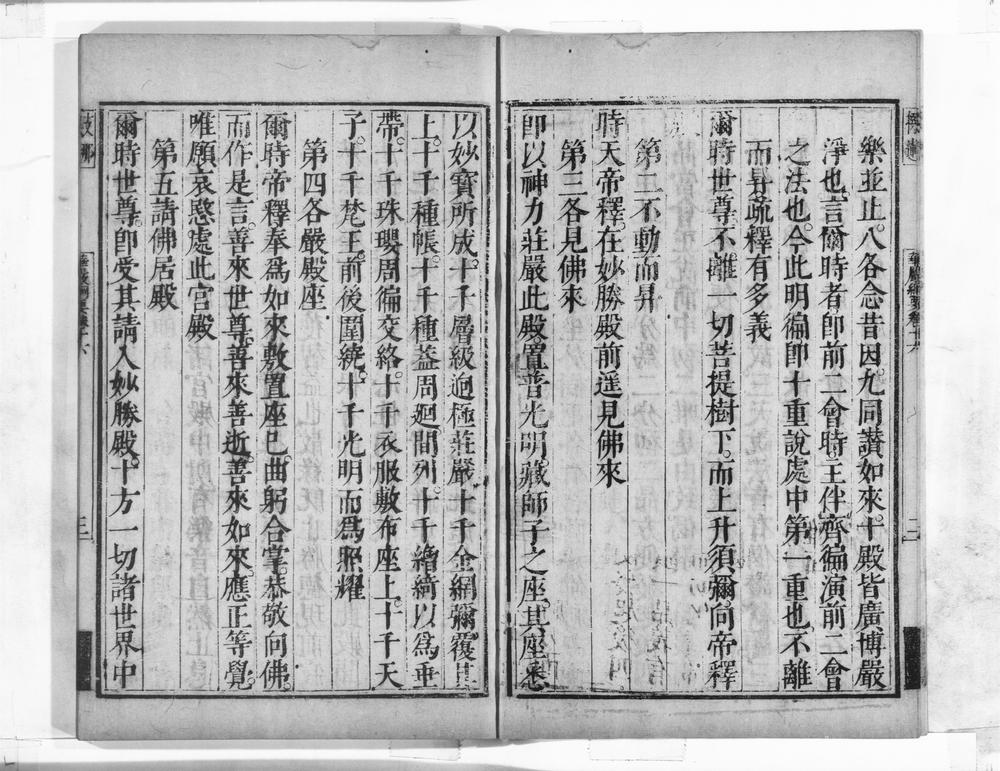 樂並止。八各念昔因。九同讚如來。十殿皆廣博嚴
淨也。言爾時者。卽前二會時。主伴齊徧演前二會
之法也。今此明徧卽十重說處中第一重也。不離
而昇疏釋有多義
爾時世尊。不離一切菩提樹下。而上升須彌。向帝釋
第二不動而昇
時天帝釋。在妙勝殿前遥見佛來
第三各見佛來
卽以神力莊嚴此殿。置普光明藏師子之座。其座悉
以妙寶所成。十千層級逈極莊嚴。十千金網彌覆其
上。十千種帳。十千種葢周廻間列。十千繒綺以爲垂
帶。十千珠瓔周徧交絡。十千衣服敷布座上。十千天
子。十千梵王。前後圍繞。十千光明而爲照耀
第四各嚴殿座
爾時帝釋奉爲如來敷置座已。曲躬合掌。恭敬向佛。
而作是言。善來世尊。善來善逝。善來如來應正等覺
唯願哀愍。處此宮殿
第五請佛居殿
爾時世尊。卽受其請。入妙勝殿。十方一切諸世界中